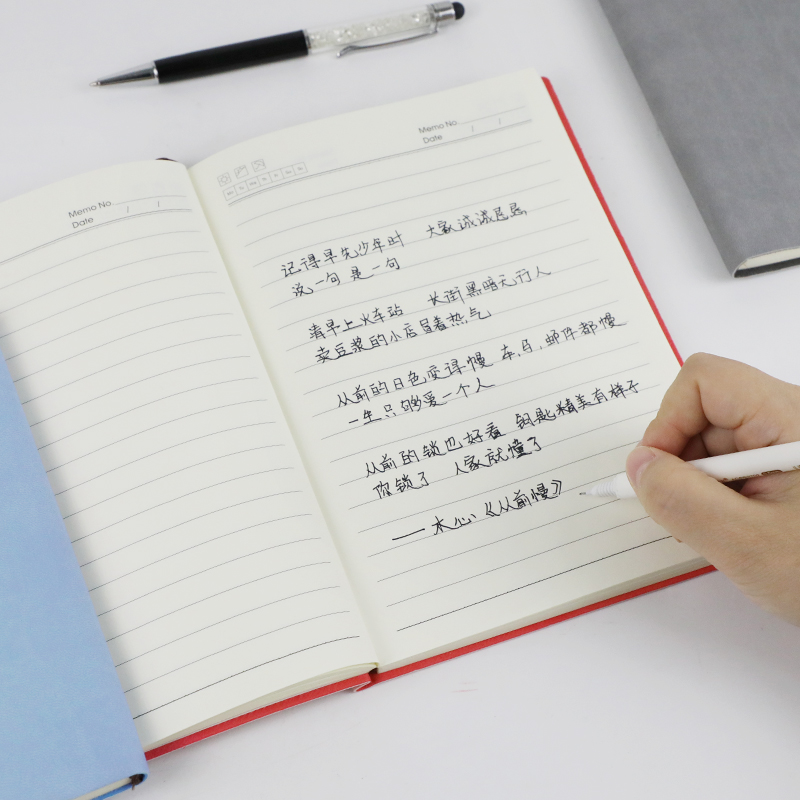 Memo No.
Date / /
Memo No.
Date / /
记得早先少年时 大家诚诚恳恳
说一句 是一句
清早上火车站 长街黑暗无行人
卖豆浆的小店冒着热气
从前的日色变得慢 车,马,邮件都慢
一生只够爱一个人
从前的锁也好看 钥匙精美有样子
你锁了 人家就懂了
——木心《从前慢》